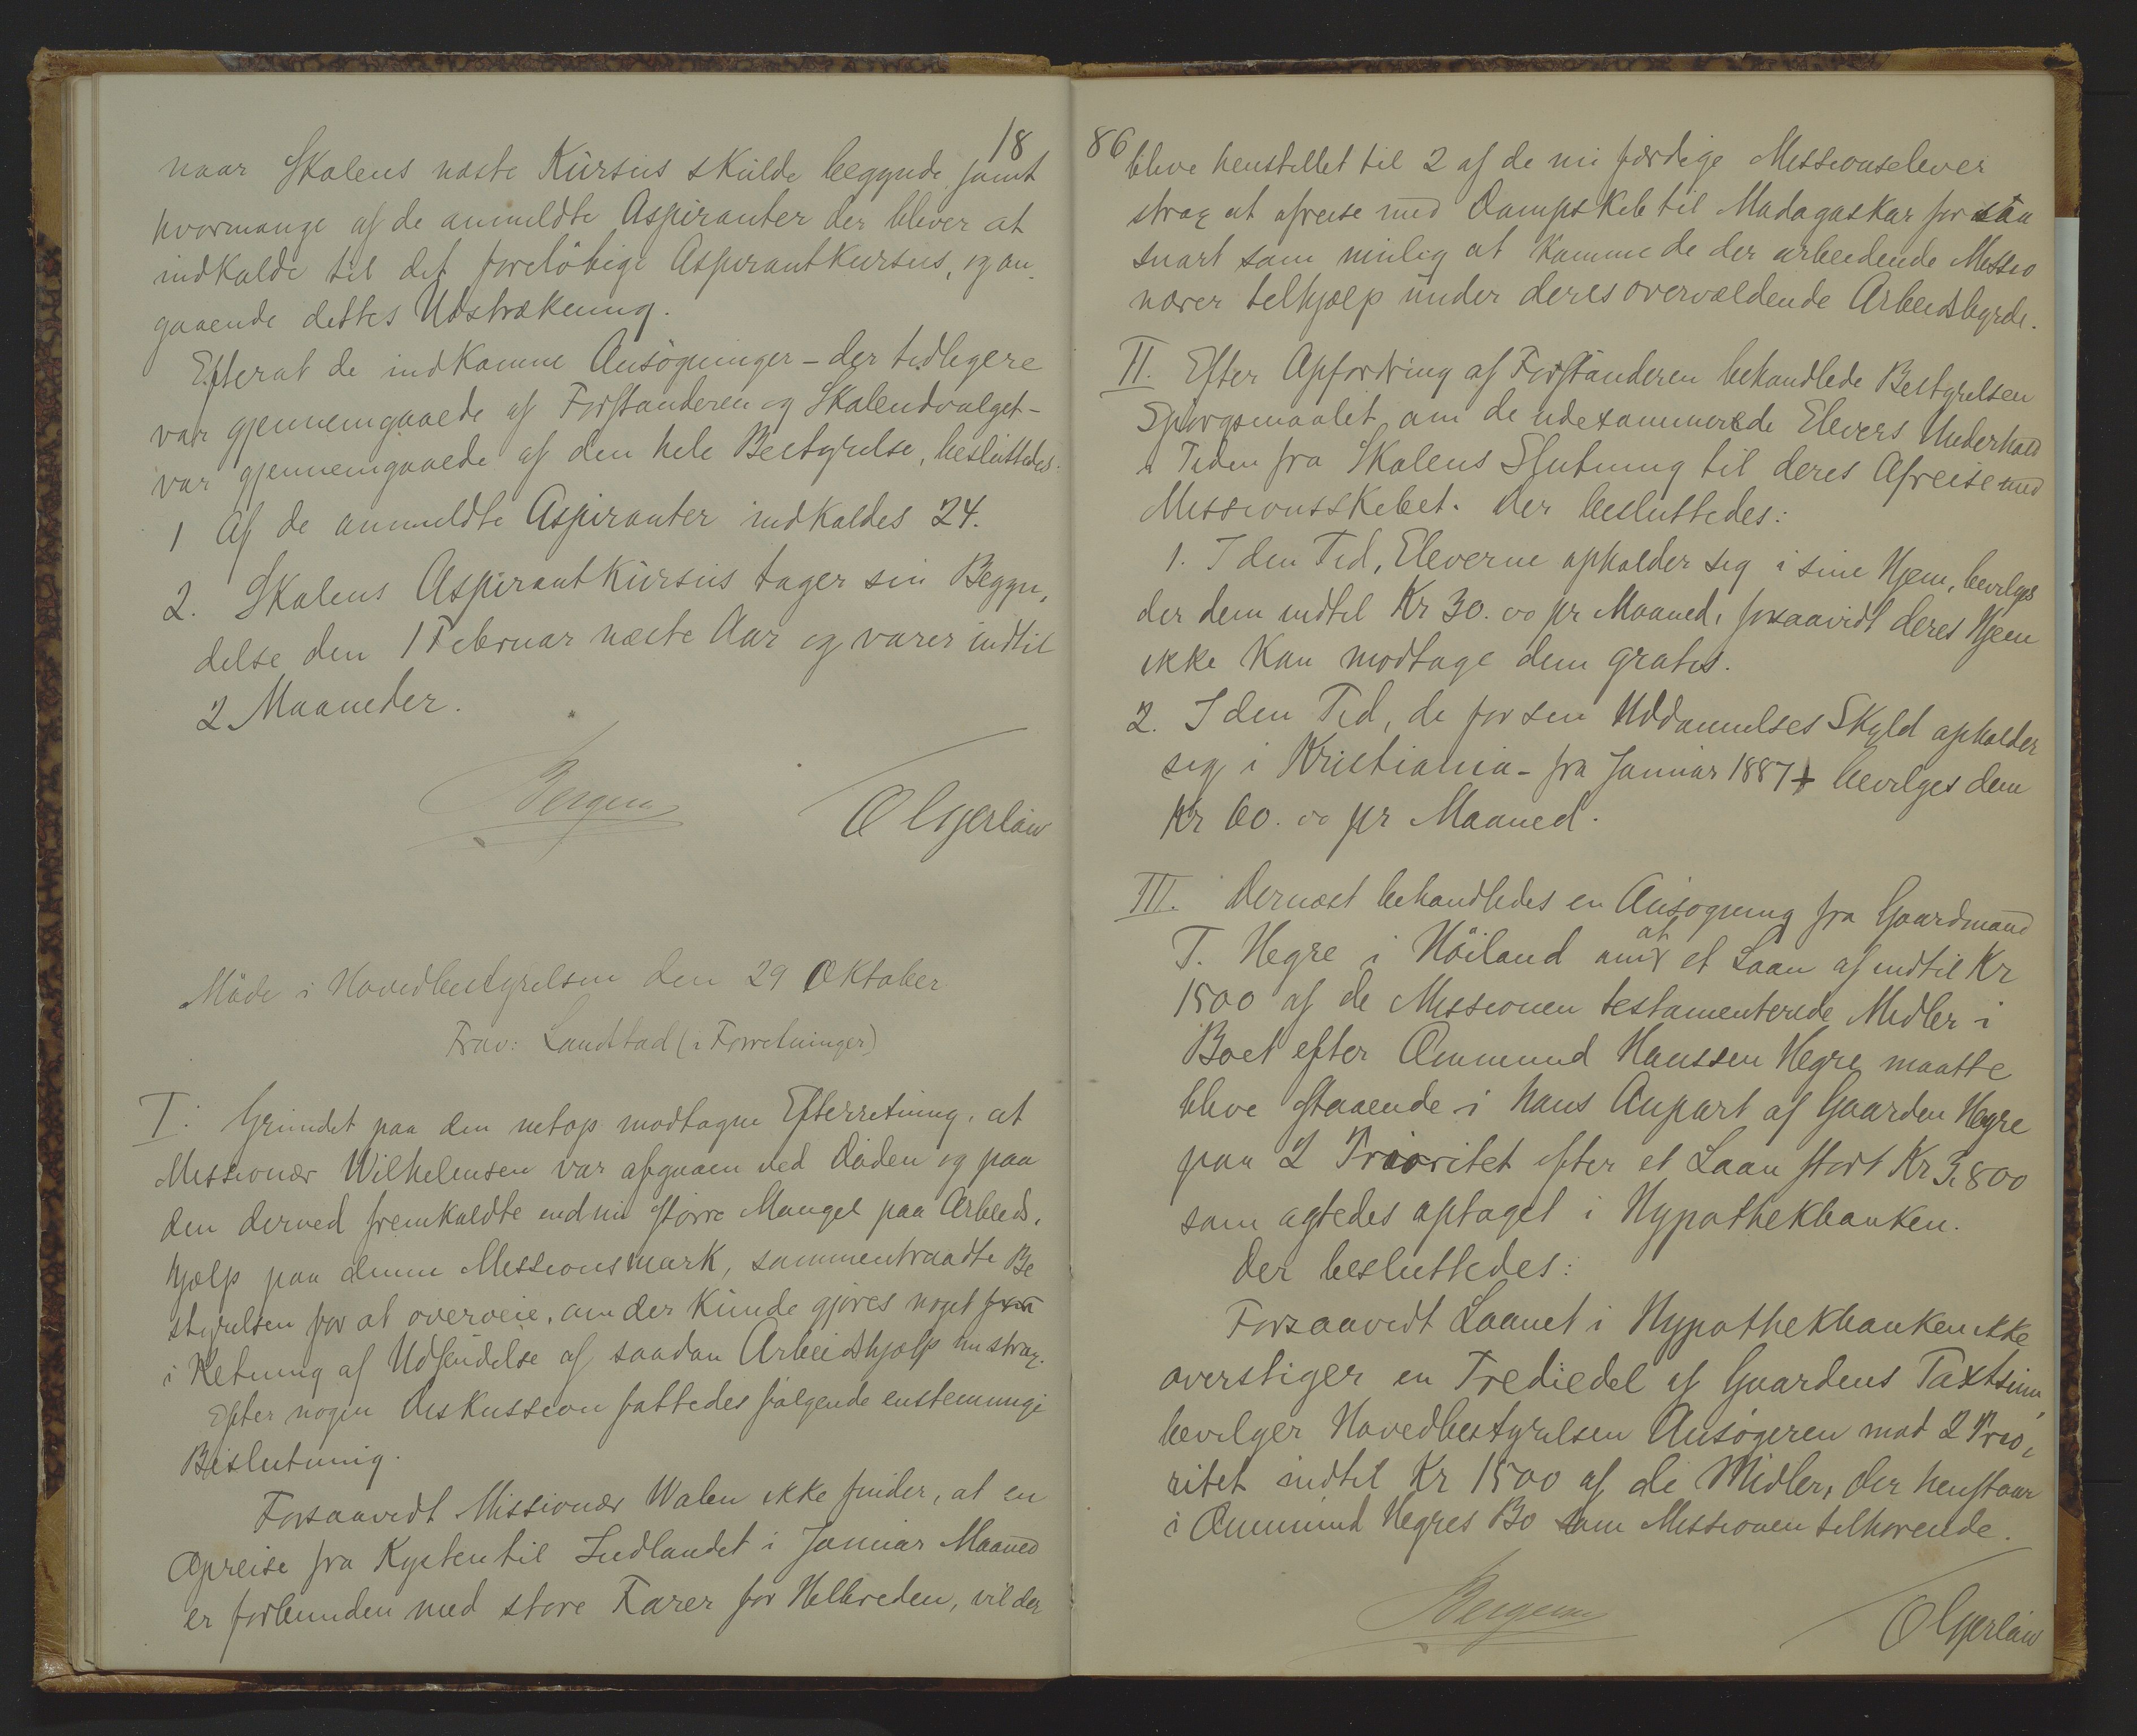 18
naar Skolens næste Kursus skulde begynde samt
hvormange af de anmeldte Aspiranter der bliver at
indkalde til det foreløbige Aspirantkursus, og an-
gaaende dettes Udstrækning.
Efterat de indkomne Ansøgninger – der tidligere
var gjennemgaaede af Forstanderen og Skoleudvalget –
var gjennemgaaede af den hele Bestyrelse, besluttedes:
1 Af de anmeldte Aspiranter indkaldes 24.
2. Skolens Aspirantkursus tager sin Begyn,
delse den 1 Februar næste Aar og varer indtil
2 Maaneder.
Borgen
O Gjerløw
Møde i Hovedbestyrelsen den 29 Oktober
Frav: Landstad (i Forretninger)
I. Grundet paa den netop modtagne Efterretning, at
Missionær Wilhelmsen var afgaaen ved Døden og paa
den derved fremkaldte endnu større Mangel paa Arbeids,
hjælp paa denne Missionsmark, sammentraadte Be
styrelsen for at overveie, om der kunde gjøres noget
i Retning af Udsendelse af saadan Arbeidshjælp nu strax.
Efter nogen Diskussion fattedes følgende enstemmige
Beslutning.
Forsaavidt Missionær Walen ikke finder, at en
Opreise fra Kysten til Indlandet i Januar Maaned
er forbunden med store Farer for Helbreden, vil der
86
blive henstillet til 2 af de nu færdige Missionselever
strax at afreise med Dampskib til Madagaskar for saa
snart som mulig at komme de der arbeidende Missio
nærer tilhjælp under deres overvældende Arbeidsbyrde.
II. Efter Opfordring af Forstanderen behandlede Bestyrelsen
Spørgsmaalet om de udexaminerede Elevers Underhold
i Tiden fra Skolens Slutning til deres Afreise med
Missionsskibet. Der besluttedes:
1. I den Tid, Eleverne opholder sig i sine Hjem, bevilges
der dem indtil Kr 30.00 pr Maaned, forsaavidt deres Hjem
ikke kan modtage dem gratis.
2. I den Tid, de for sin Uddannelses Skyld opholder
sig i Kristiania – fra Januar 1887 – bevilges dem
Kr 60.00 pr Maaned.
III. Dernæst behandledes en Ansøgning fra Gaardmand
T. Hegre i Høiland om at et Laan af indtil Kr
1500 af de Missionen testamenterede Midler i
Boet efter Ommund Hanssen Hegre maatte
blive staaende i hans Anpart af Gaarden Hegre
paa 2 Prioritet efter et Laan stort Kr 3,800
som agtedes optaget i Hypothekbanken.
Der besluttedes:
Forsaavidt Laanet i Hypothekbanken ikke
overstiger en Trediedel af Gaardens Taxtsum,
bevilger Hovedbestyrelsen Ansøgeren mod 2 Prio,
ritet indtil Kr 1500 af de Midler, der henstaar
i Ommund Hegres Bo som Missionen tilhørende.
Borgen
O Gjerløw